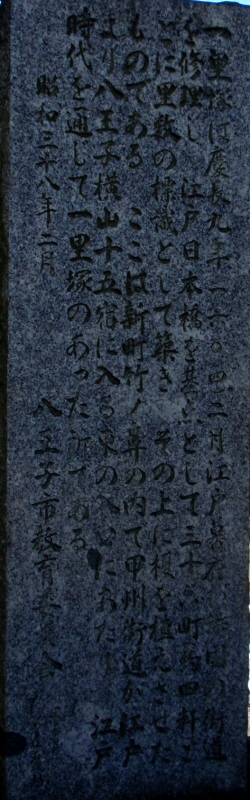 一里塚は慶長九年一六〇四二月江戸幕府 諸国の街道
を修理し 江戸日本橋を基点として三十六町約四粁ご
とに里数の標識として築き その上に榎を植えさせた
ものである ここは新町竹ノ鼻の内で甲州街道が江戸
より八王子横山十五宿に入る東の入口にあたり 江戸
時代を通じて一里塚のあった所である
昭和三十八年二月
八王子市教育委員会